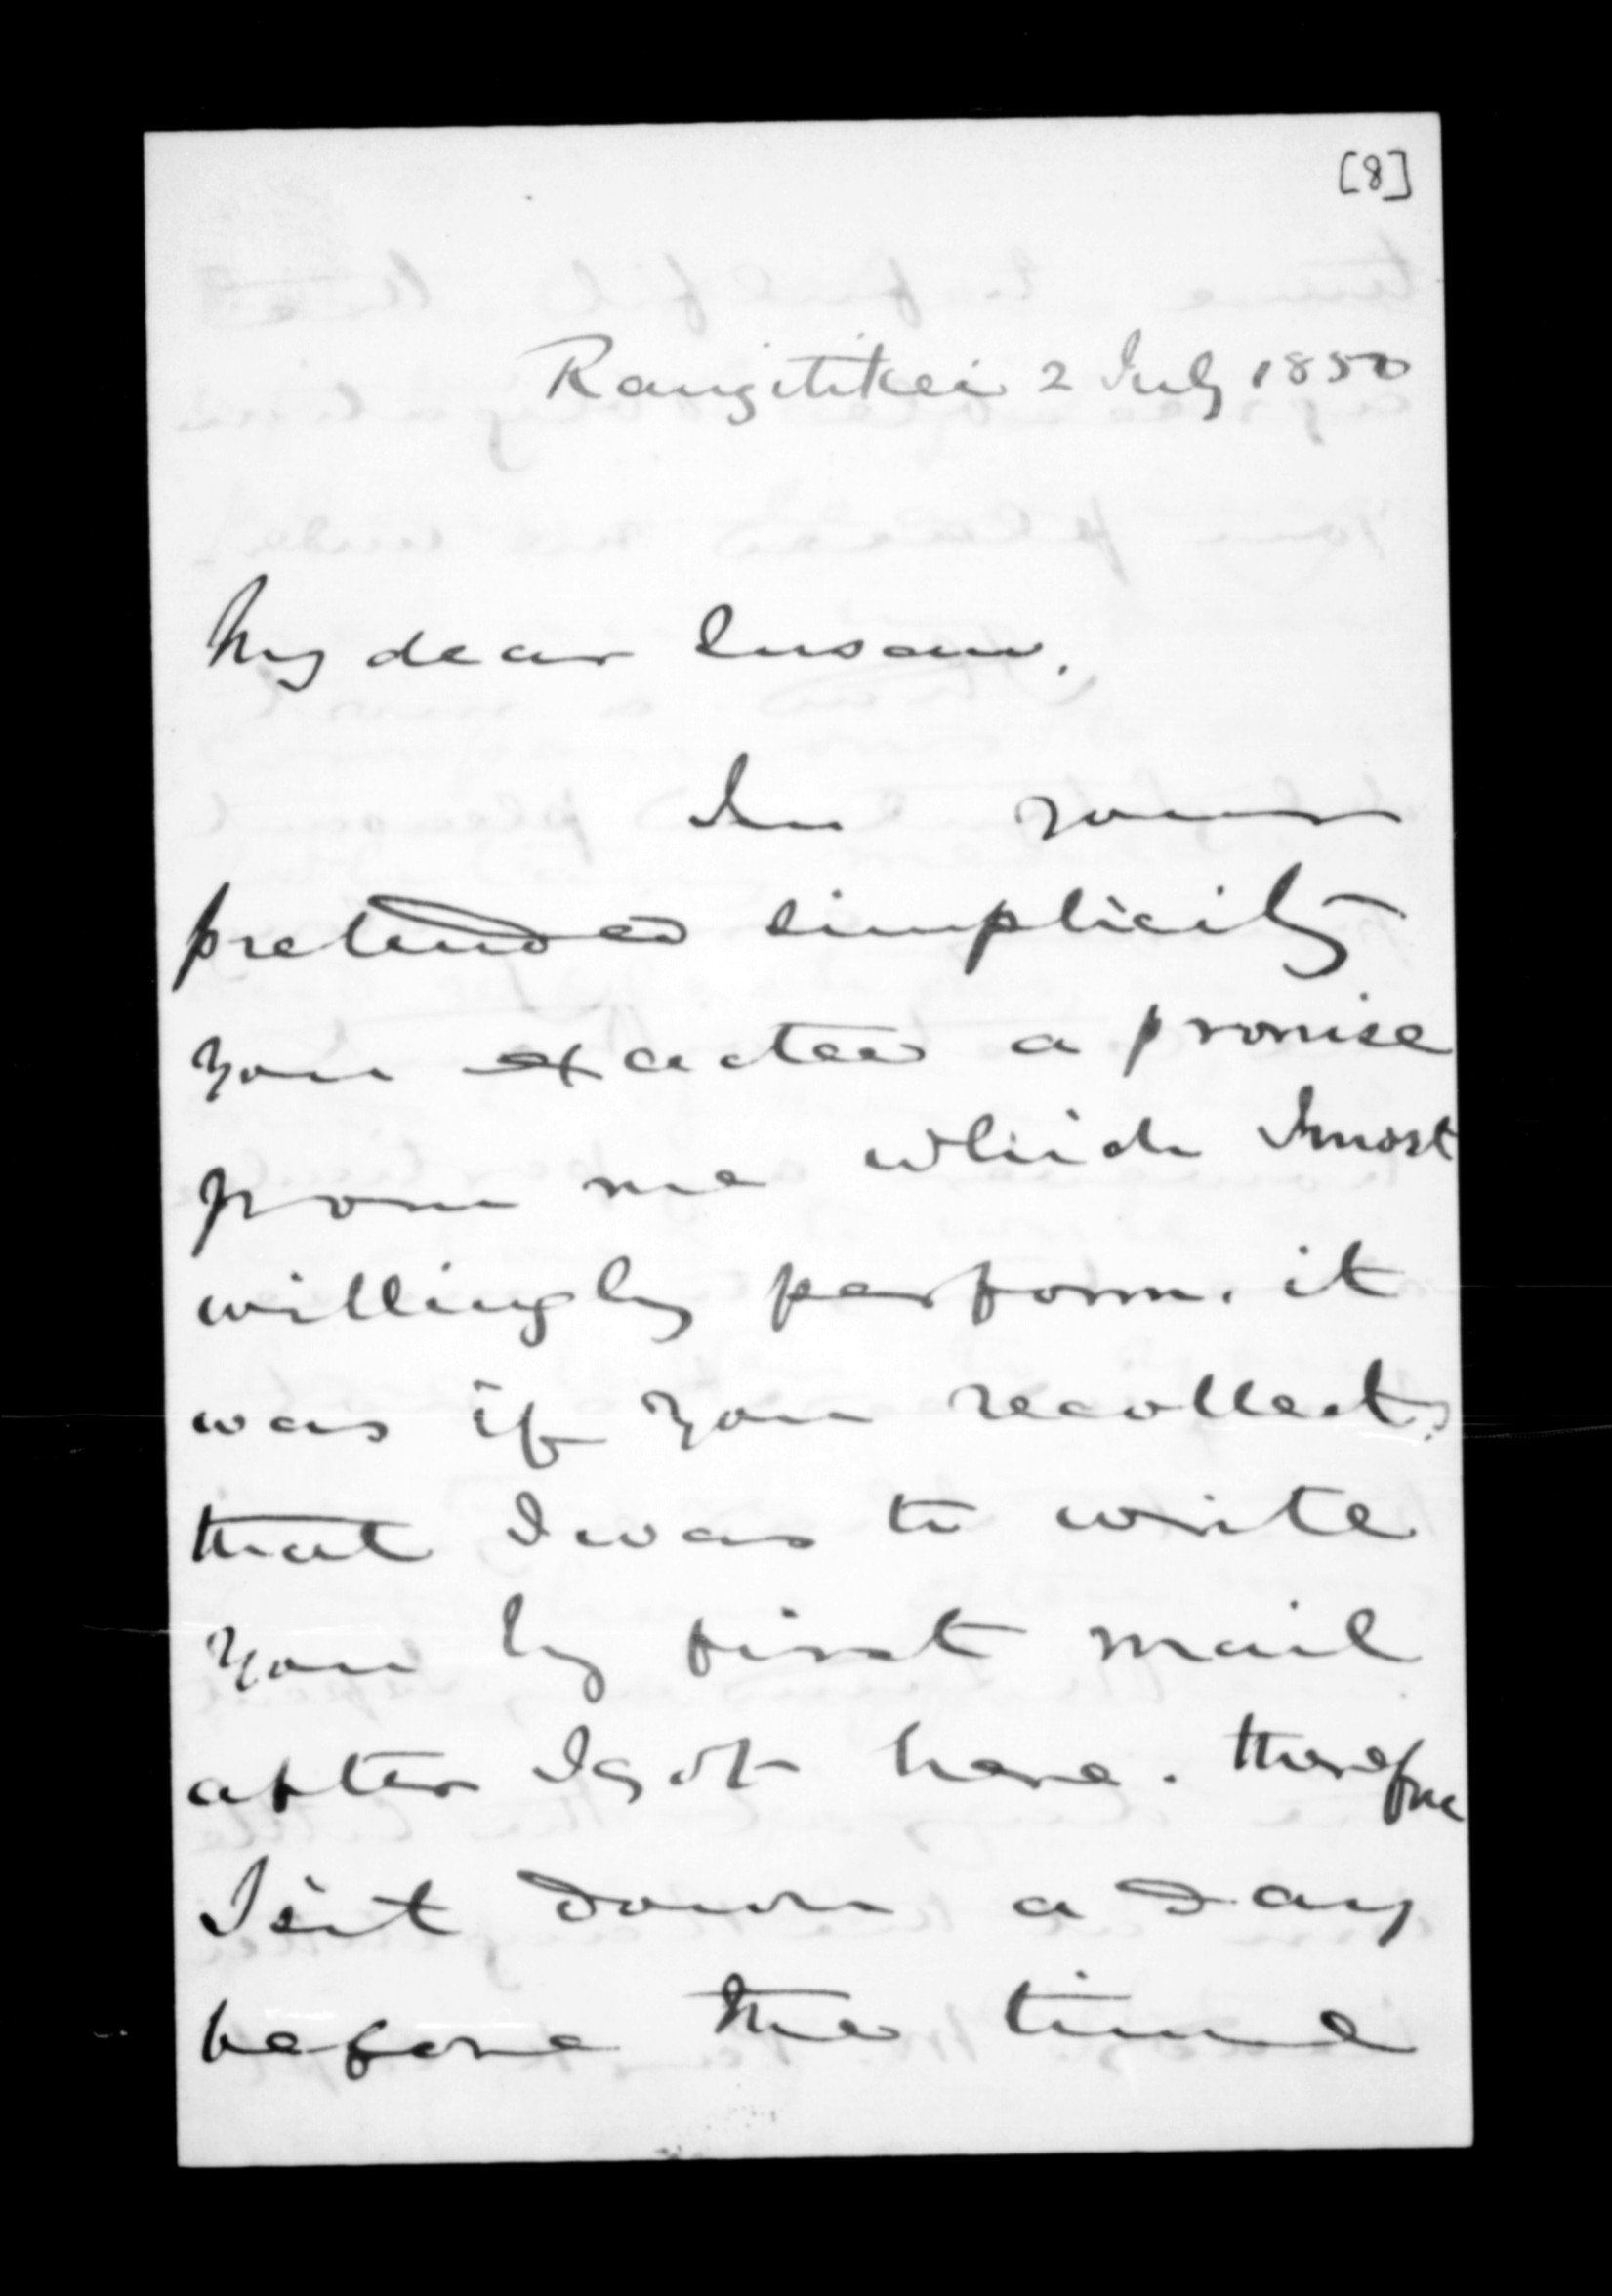 [8]
Rangitikei 2 July 1850
My dear Susan.
In your
pretended simplicity
you exacted a promise
from me which I most
willingly perform. it
was if you recollect,
that I was to write
you by first mail
after I got here. therefore
I sit down a day
before the time